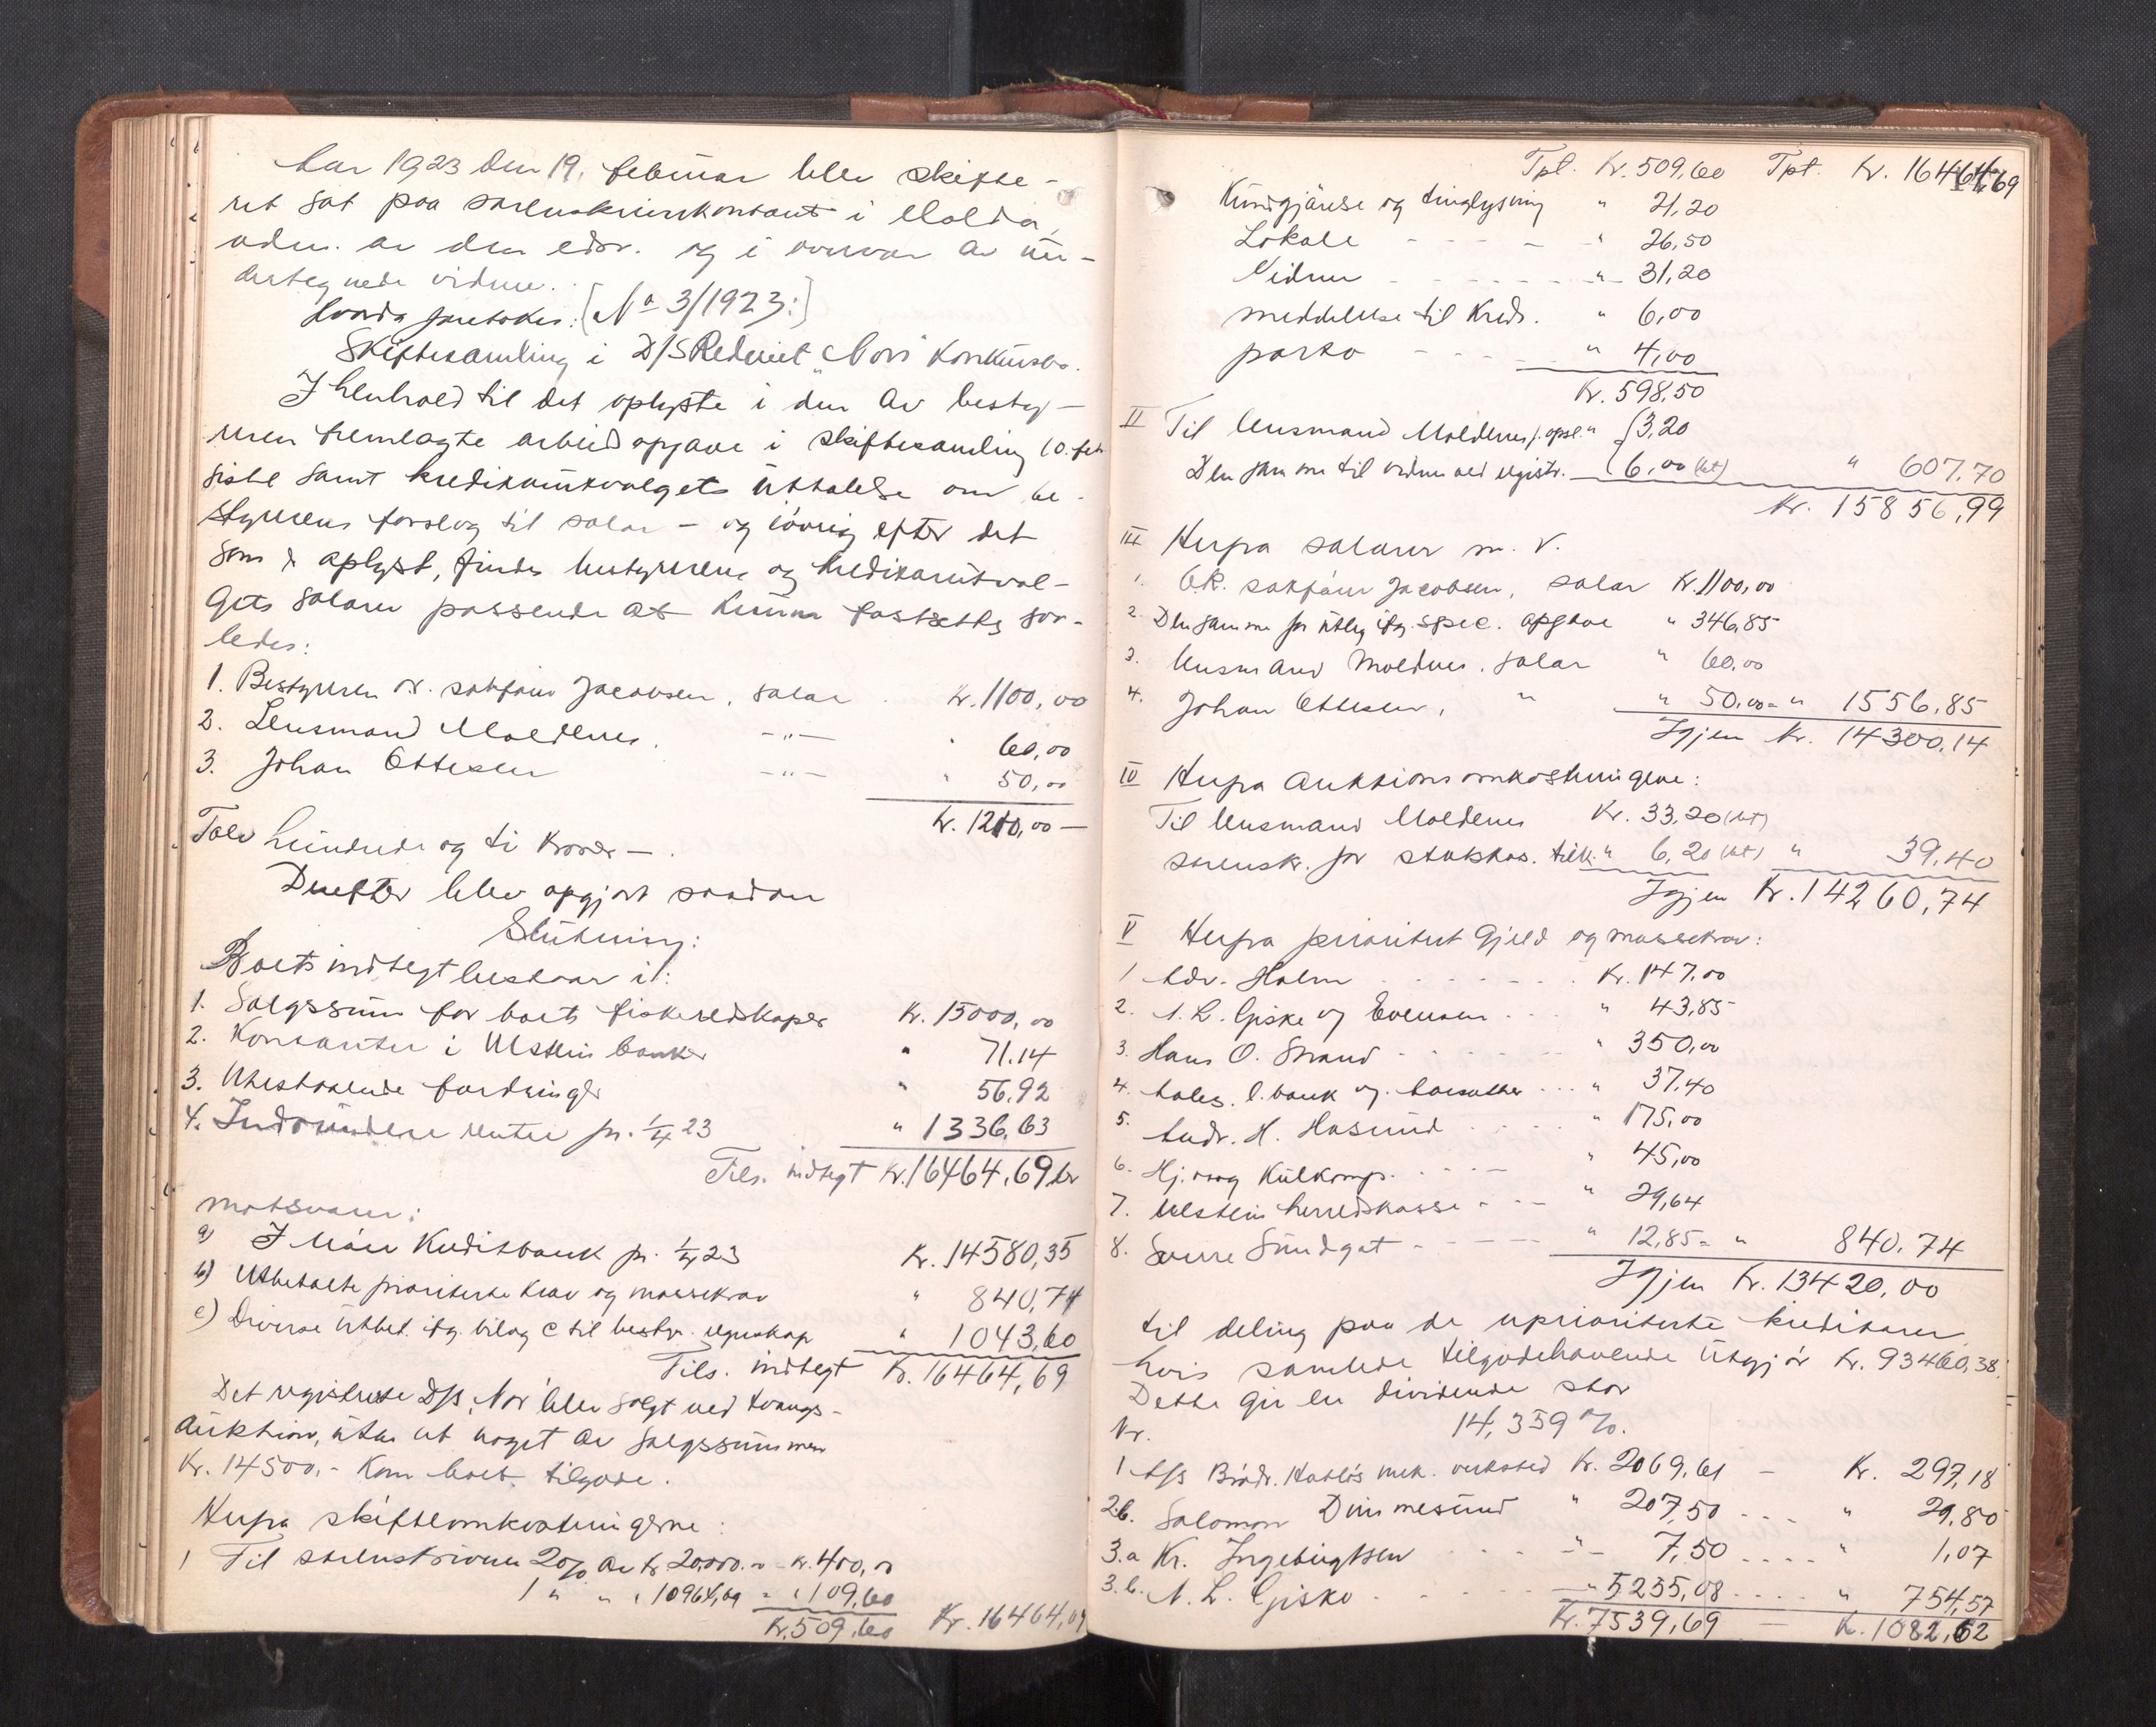 Aar 1923 den 19. februar blev skifte-
ret sat paa sorenskriverkontoret i Volda,
adm. av den edsv. og i overvær av un-
dertegnede vidne.
Hvorda foretokes: [No 3/1923:]
Skiftesamling i D/S Rederiet "Nor"s konkursbo.
I henhold til det oplyste i den av besty-
reren fremlagte arbeidsopgave i skiftesamling 10. feb.
sistl. samt kreditorutvalgets uttalelse om be-
styrerens forslag til salar – og iøvrig efter det
som er oplyst, findes bestyrerens og kreditorutval-
gets salarer passende at kunne fastsættes saa-
ledes:
1. Bestyreren o.r. sakfører Jacobsen, salar Kr. 1100,00
2. Lensmand Moldnes, -"- " 60,00
3. Johan Ottesen -"- " 50,00
Kr. 1210,00 —
Tolv hundrede og ti kroner —.
Derefter blev opgjort saadan
Slutning:
Boets indtegt bestaar i:
1. Salgssum for boets fiskeredskaper Kr. 15000,00
2. Kontanter i Ulstein banker " 71.14
3. Utestaaende fordringer " 56,92
4. Indvundene renter pr. 1/4 23 " 1336,63
Tils. indtegt Kr. 16464,69
motsvarer:
a) I Møre Kreditbank pr. 1/4 23 Kr. 14580,35
b) Utbetalte prioriterte krav og massekrav " 840,74
c) Diverse utbet. iflg. bilag C til bestyr. regnskap " 1043,60
Tils. indtegt Kr. 16464,69
Det registrerte D/S "Nor" blev solgt ved tvangs-
auktion, uten at noget av salgssummen
Kr. 14500.- kom boet tilgode.
Herfra skifteomkostningerne:
1 Til sorenskriveren 2% av kr. 20,000.00 - kr. 400,00
1 " " " 10964,69 = " 109,60
Kr. 509,60 Kr. 16464,69
Tpt. Kr. 509,60 Tpt. Kr. 16464,69
Kundgjørelse og tinglysning " 21,20
Lokale - - - - " 26,50
Vidner - - - - " 31,20
meddelelse til Kreds. " 6,00
porto - - - - " 4,00
Kr. 598,50
II Til lensmand Moldnes f. opsl. " 3,20
Den samme til vidner ved registr. 6,00 (bt) " 607,70
Kr. 15856,99
III Herfra salarer m. v.
1. O.R. sakfører Jacobsen, salar Kr. 1100,00
2. Den samme for utlæg iflg. spec. opgave " 346,85
3. Lensmand Moldnes, salar " 60,00
4. Johan Ottesen, " " 50,00 = " 1556,85
Igjen Kr. 14300,14
IV Herfra auktionsomkostningene:
Til lensmand Moldnes Kr. 33,20 (bt)
sorenskr. for statskas. tilk. " 6,20 (bt) " 39,40
Igjen Kr. 14260,74
V Herfra prioritert gjeld og massekrav:
1 Adv. Holm - - - Kr. 147,00
2. N. L. Giske og Evensen - - - " 43,85
3. Hans O. Strand - - - " 350,00
4. Aales. l. bank og - - - " 37,40
5. Andr. H. Hasund - - - " 175,00
6. Hj.vaag Kulkomp. - - - " 45,00
7. Ulstein herredskasse - - - " 29,64
8. Sverre Sundgot - - - " 12,85 = " 840,74
Igjen Kr. 13420,00
til deling paa de uprioriterte kreditorer
hvis samlede tilgodehavende utgjør Kr. 93460,38.
Dette gir en dividende stor
14,359 %.
Nr.
1 A/S Brødr. Hatløs mek. verksted Kr. 2069,61 - Kr. 297,18
2b. Salomon Dimmesund " 207,50 - - - " 29,80
3.a Kr. Ingebrigtsen - - - " 7,50 - - - " 1,07
3.b. N. L. Giske - - - " 5255,08 - - - " 754,57
Kr. 7539,69 - Kr. 1082,62